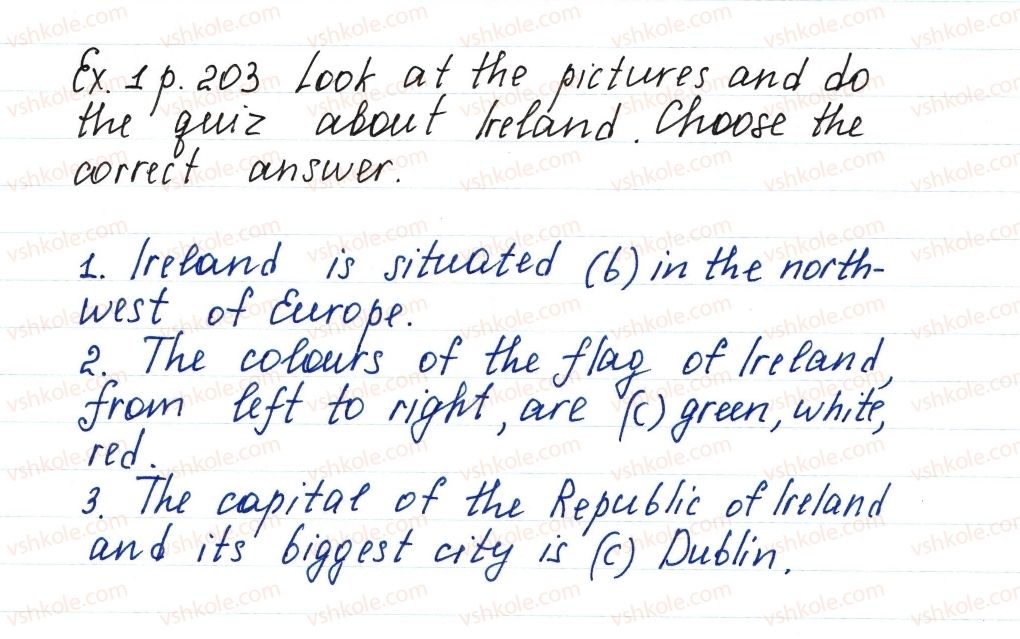 Ex. 1 p. 203 Look at the pictures and do
the quiz about Ireland. Choose the
correct answer.
1. Ireland is situated (b) in the north-
west of Europe.
2. The colours of the flag of Ireland,
from left to right, are (c) green, white,
red.
3. The capital of the Republic of Ireland
and its biggest city is (c) Dublin.
vshkole.com